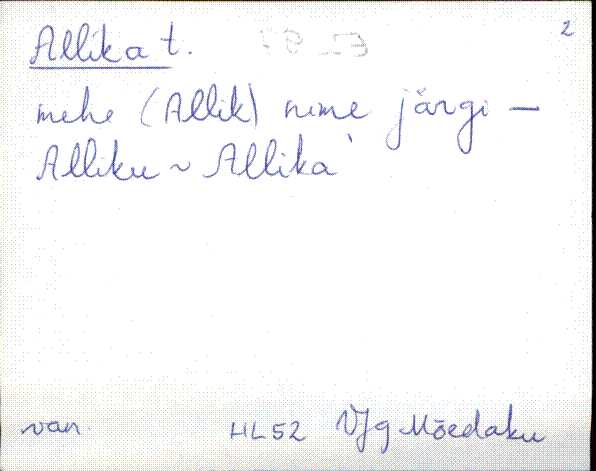 Allika t.
2
mehe (Allik) nime järgi –
Alliku ~ Allika
van.
HL52
VJg Mõedaku